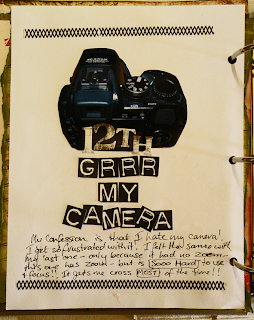 12TH
GRRR
MY
CAMERA
My Confession is that I hate my camera!
I get so frustrated with it! I felt the same with
my last one - only because it had no zoom -
this one has zoom - but is SOOO HARD to use
& focus!! It gets me cross MOST of the time!!